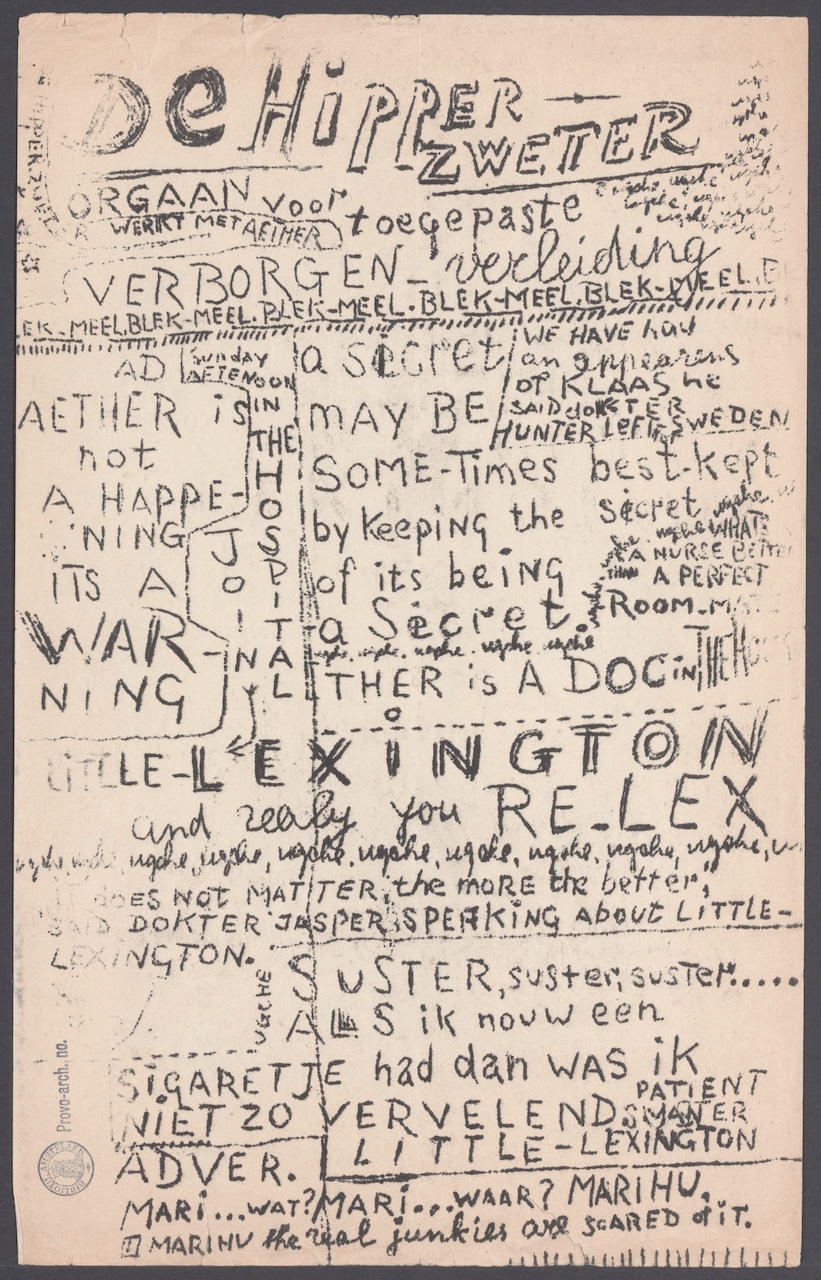 De HiPPER
ZWETER
ORGAAN voor toegepaste
WERKT MET AETHER
VERBORGEN_verleiding
EK-MEEL.BLEK-MEEL.BLEK-MEEL.BLEK-MEEL.BLEK-MEEL.B
AD
SUNDAY
AFTENOON
IN
THE
HOSPITAL
AETHER is
not
A HAPPE-
NING
ITS A
WAR-
NING
JOIN
a secret
MAY BE
WE HAVE had
an appearens
OF KLAAS he
SAID dOKTER
HUNTER LEFT SWEDEN
SOME-Times best-kept
by keeping the secret
of its being
a Secret.
A NURSE
THAN A PERFECT
ROOM-
ugche. ugche. ugche
THER is A DOC in THE
LITTLE-LEXiNGTON
and realy you RE_LEX
ugche, ugche, ugche, ugche, ugche, ugche, ugche, ugche, ugche,
IT dOES NOT MATTER, the MORE the better,"
SAID DOKTER JASPER SPEAKING About LITTLE-
LEXINGTON.
UGCHE
SUSTER, suster, suster.....
ALS ik nouw een
SiGARETJE had dan WAS iK
NIET ZO VERVELEND.
PATIENT
LITTLE-LEXINGTON
ADVER.
MARI...WAT? MARI...WAAR? MARIHU.
MARIHU the real junkies are SCARED of iT.
Provo-arch. no.